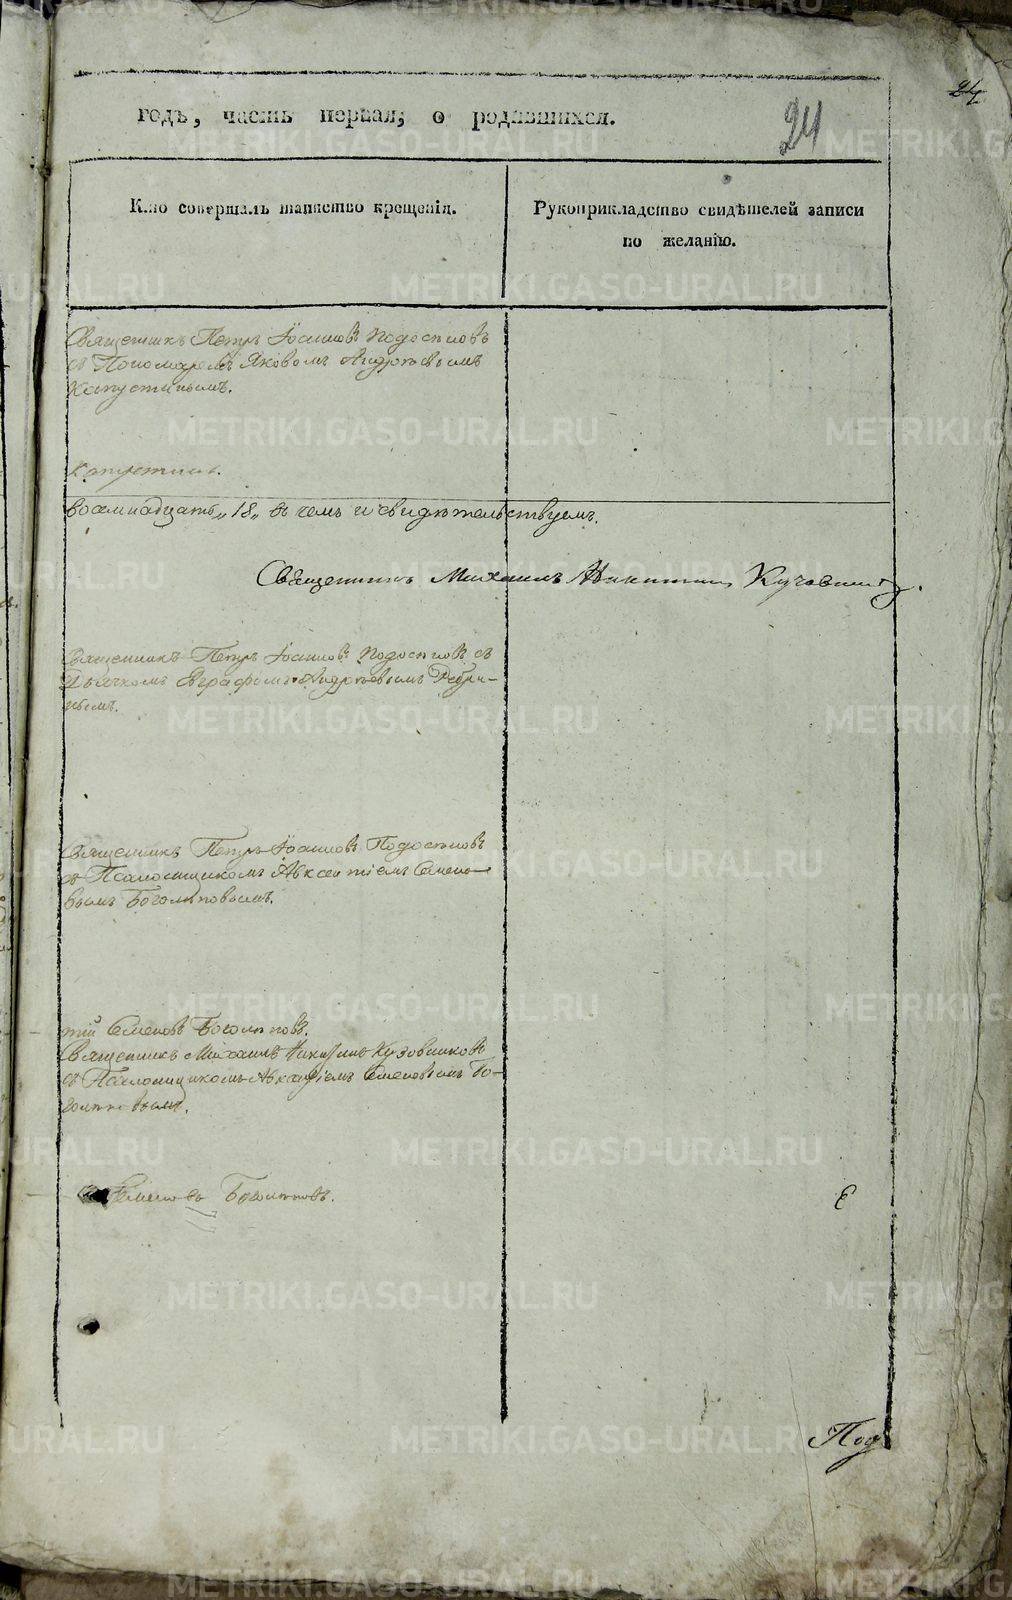 24
годъ, часть первая, о родившихся.
24
Кто совершалъ таинство крещенія.
Рукоприкладство свидѣтелей записи
по желанію.
Священникъ Петръ Іоанновъ
съ Пономаремъ Яковомъ Андреевымъ
Капустинымъ.
Капустинъ.
восемнадцать „18„ въ чемъ и свидѣтельствуемъ.
Священникъ Михаилъ Никитинъ
Священникъ Петръ Іоанновъ съ
Дьячкомъ Евграфомъ Андреевымъ
Священникъ Петръ Іоанновъ
съ Псаломщикомъ Авксентіемъ Семено-
вымъ Боголѣповымъ.
тій Семеновъ Боголѣповъ.
Священникъ Михаилъ Никитинъ
съ Псаломщикомъ Семеновымъ Бо-
голѣповымъ.
Семеновъ Боголѣповъ.
Под
METRIKI.GASO-URAL.RU